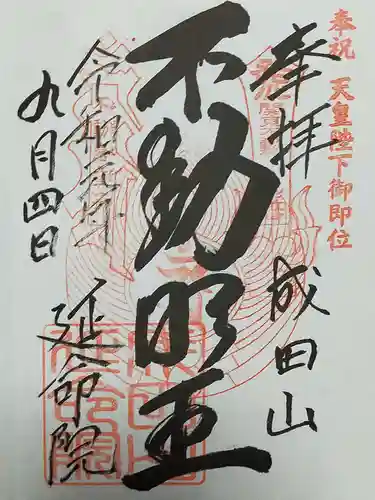 奉祝 天皇陛下御即位
奉拝
成田山
不動明王
令和元年
九月四日
延命院